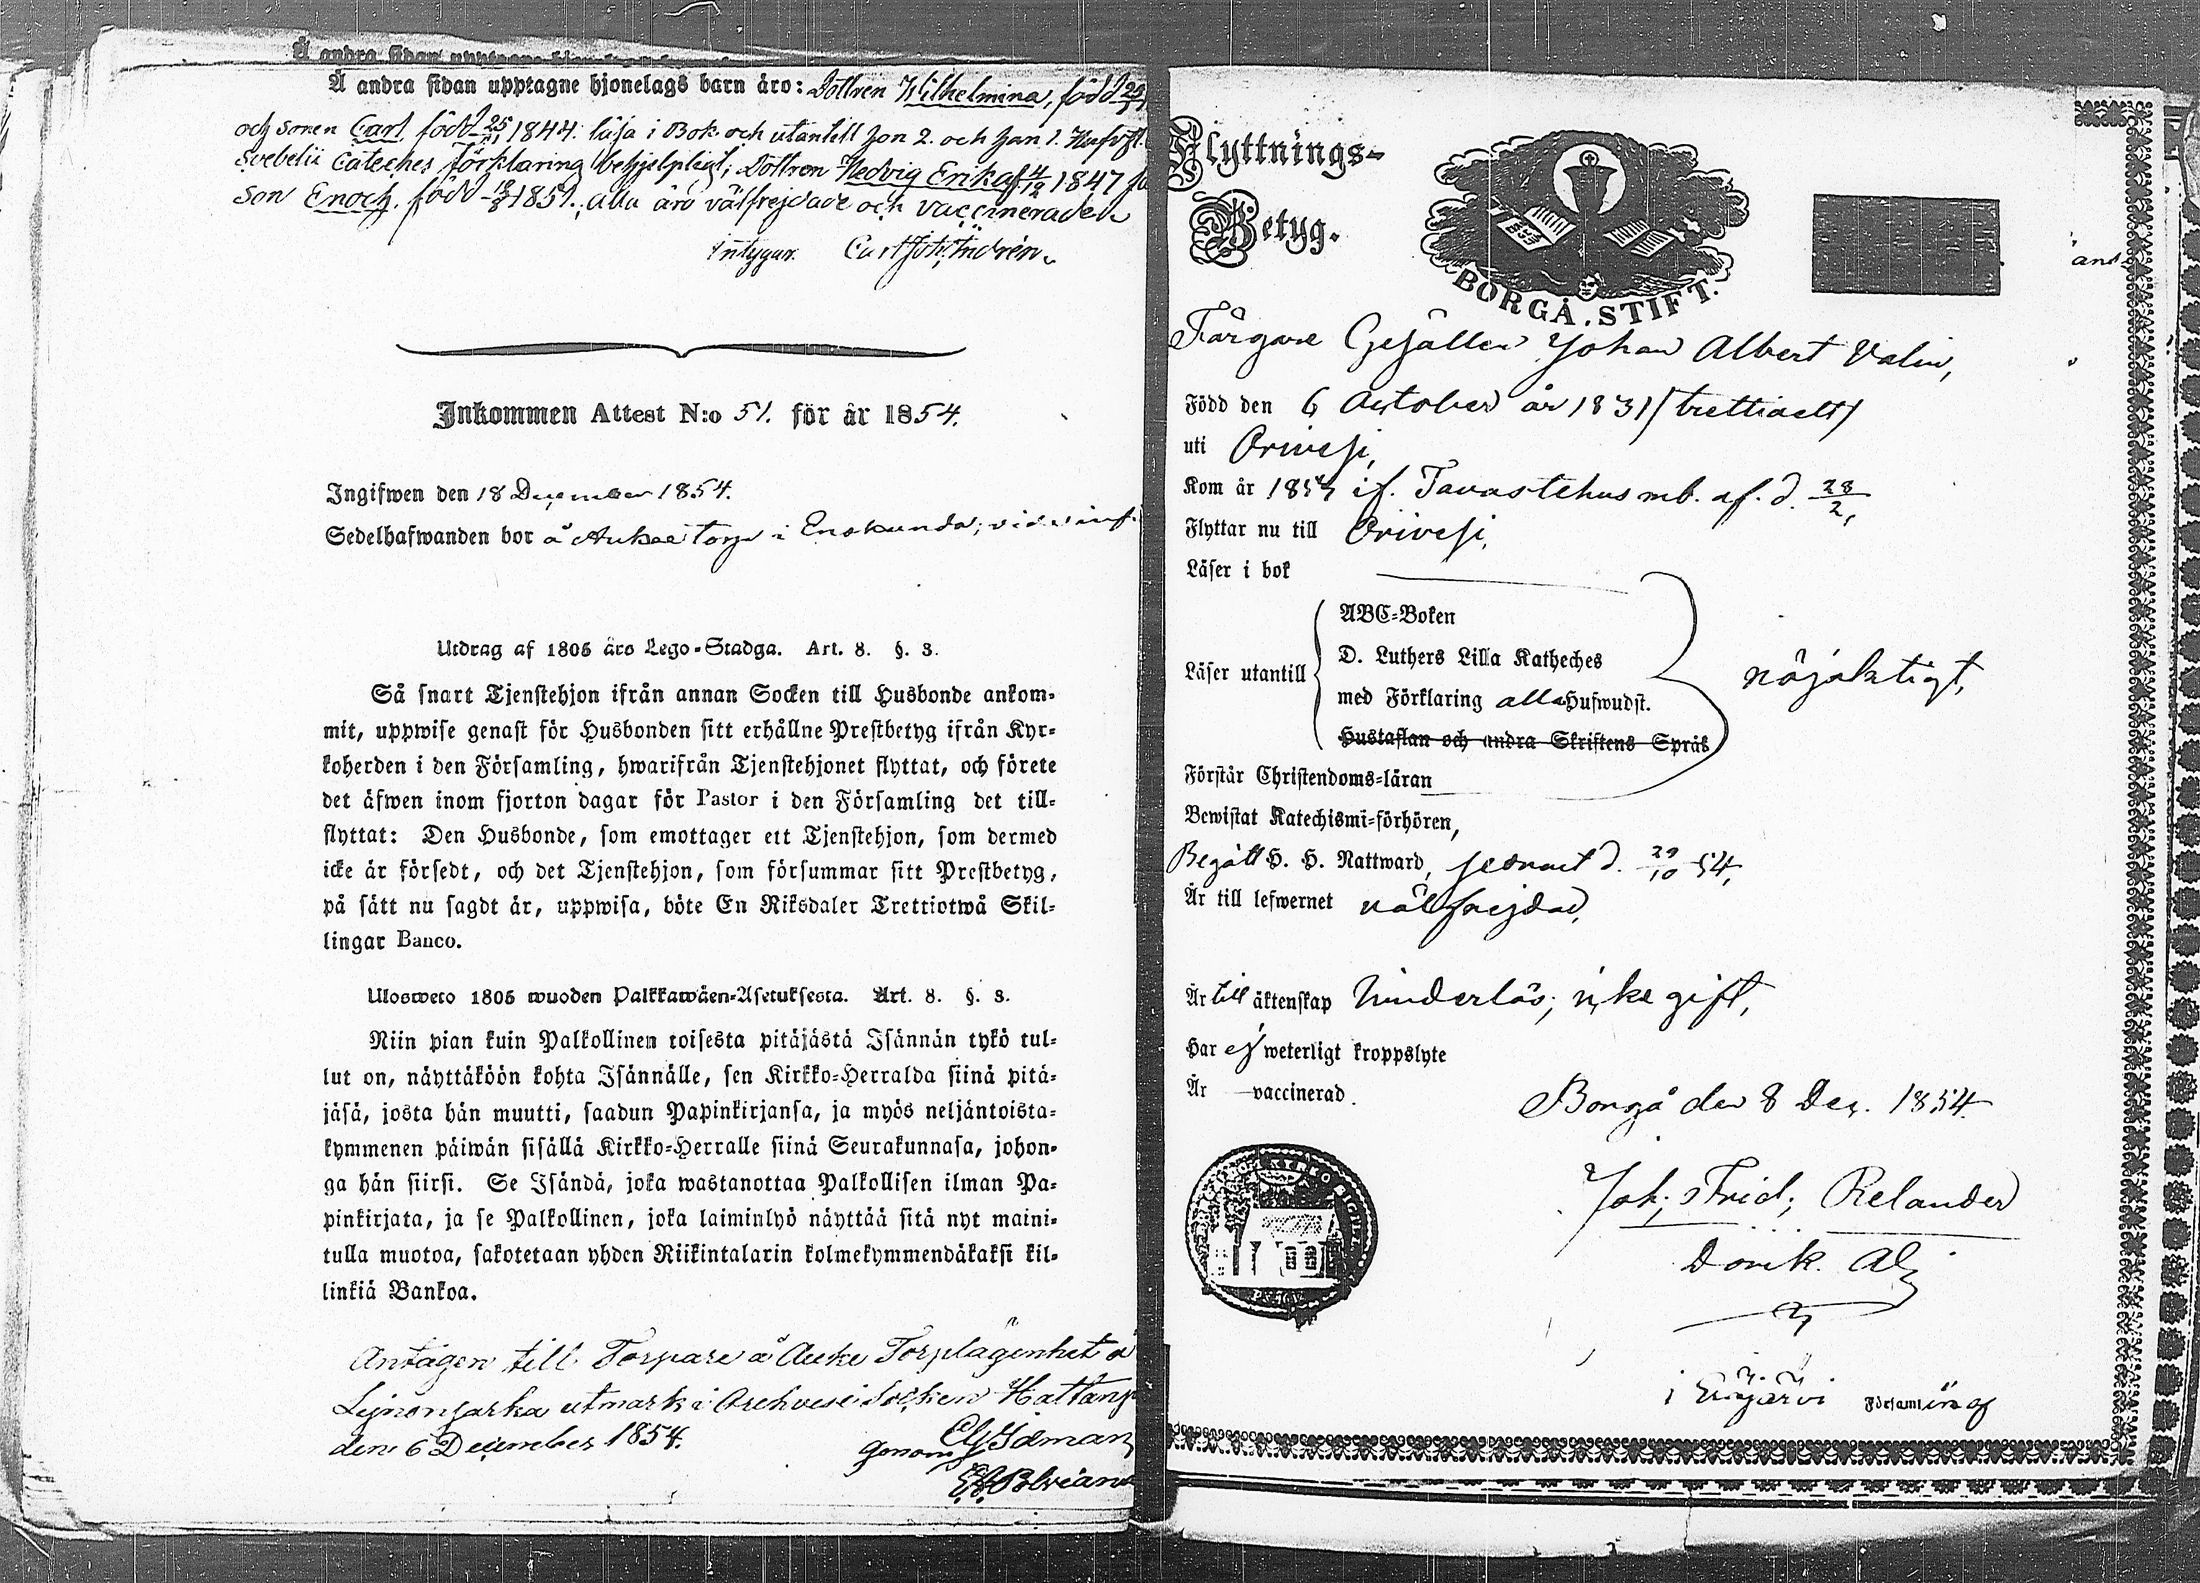 Å andra sidan upptagne hjonelags barn äro: Dottren Wilhelmina, född
och sonen Carl, född 25/11 1844. läsa i Bok och utantill hon 2. och han 1. Hufvst.
Svebelii Cateches förklaring behjelpligt; Dottren Hedvig Erika f. 4/12 1847
Son Enoch. född 1851., alla äro välfrejdade och vaccinerade
intygar. Carl Joh. Indrén.
Inkommen Attest N:o 51. för år 1854.
Ingifwen den 18 December 1854.
Sedelhafwanden bor å Aukee torp i Enokunda;
Utdrag af 1805 års Lego-Stadga. Art. 8. §. 3.
Så snart Tjenstehjon ifrån annan Socken till Husbonde ankom-
mit, uppwise genast för Husbonden sitt erhållne Prestbetyg ifrån Kyr-
koherden i den Församling, hwarifrån Tjenstehjonet flyttat, och förete
det äfwen inom fjorton dagar för Pastor i den Församling det till-
flyttat: Den Husbonde, som emottager ett Tjenstehjon, som dermed
icke är försedt, och det Tjenstehjon, som försummar sitt Prestbetyg,
på sätt nu sagdt är, uppwisa, böte En Riksdaler Trettiotwå Skil-
lingar Banco.
Ulosweto 1805 wuoden Palkkawäen-Asetuksesta. Art. 8. §. 3.
Niin pian kuin Palkollinen toisesta pitäjästä Isännän tykö tul-
lut on, näyttäköön kohta Isännälle, sen Kirkko-Herralda siinä pitä-
jäsä, josta hän muutti, saadun Papinkirjansa, ja myös neljäntoista-
kymmenen päiwän sisällä Kirkko-Herralle siinä Seurakunnasa, johon-
ga hän siirsi. Se Isändä, joka wastanottaa Palkollisen ilman Pa-
pinkirjata, ja se Palkollinen, joka laiminlyö näyttää sitä nyt maini-
tulla muotoa, sakotetaan yhden Riikintalarin kolmekymmendäkaksi kil-
linkiä Bankoa.
Antagen till Torpare å Aucke Torplägenhet å
utmark i Orehvesi Socken
den 6 December 1854.
genom
Flyttnings-
Betyg.
BORGÅ. STIFT.
Färgare Gesällen Johan Albert Valin,
Född den 6 October år 1831 / trettioett /
uti Orivesi,
Kom år 1854 if. Tavastehus mb. af. d. 28/2,
Flyttar nu till Orivesi,
Läser i bok
Läser utantill
ABC-Boken
D. Luthers Lilla Katheches
med Förklaring alla Hufwudst.
Hustaflan och andra Skriftens Språk
nöjaktigt,
Förstår Christendoms-läran
Bewistat Katechismi-förhören,
Begått H. H. Nattward, senast d. 29/10 54,
Är till lefwernet välfrejdad,
Är till äktenskap hinderlös; icke gift,
Har ej weterligt kroppslyte
Är vaccinerad.
Borgå den 8 Dec. 1854.
Joh. Frid. Relander
Domk. Adj
i församling af